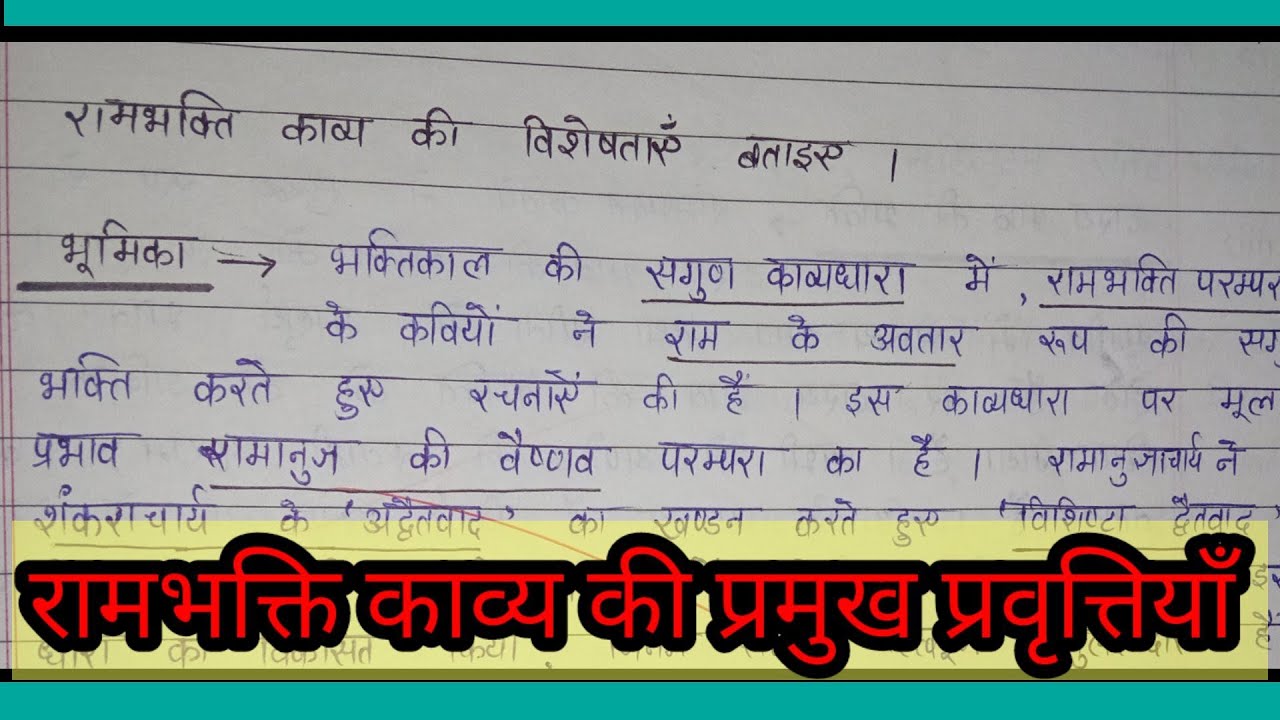 रामभक्ति काव्य की विशेषताएँ बताइए ।
भूमिका → भक्तिकाल की सगुण काव्यधारा में , रामभक्ति परम्पर
के कवियों ने राम के अवतार रूप की सगु
भक्ति करते हुए रचनाएँ की हैं । इस काव्यधारा पर मूल
प्रभाव रामानुज की वैष्णव परम्परा का है । रामानुजाचार्य ने
शंकराचार्य के 'अद्वैतवाद' का खण्डन करते हुए 'विशिष्टा द्वैतवाद'
रामभक्ति काव्य की प्रमुख प्रवृत्तियाँ
धारा को विकसित किया